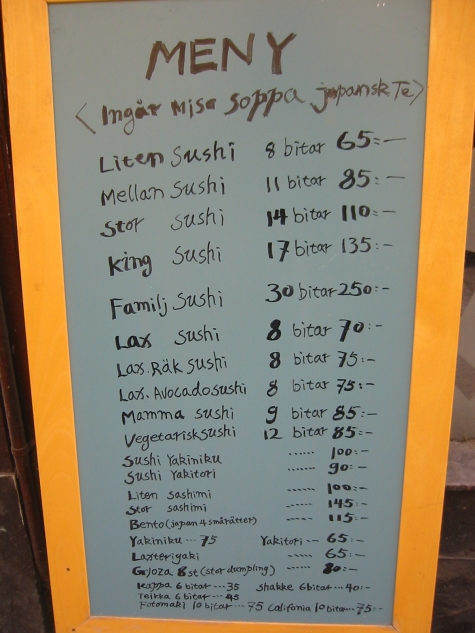 MENY
<Ingår Miso Soppa japansk Te>
Liten Sushi 8 bitar 65:-
Mellan Sushi 11 bitar 85:-
Stor Sushi 14 bitar 110:-
King Sushi 17 bitar 135:-
Familj Sushi 30 bitar 250:-
Lax Sushi 8 bitar 70:-
Lax.Räk Sushi 8 bitar 75:-
Lax.Avocado sushi 8 bitar 75:-
Mamma sushi 9 bitar 85:-
Vegetarisk sushi 12 bitar 85:-
Sushi Yakiniku ...... 100:-
Sushi Yakitori ...... 90:-
Liten Sashimi ...... 100:-
Stor sashimi ...... 145:-
Bento (japan 4 smårätter) ----- 115:-
Yakiniku --- 75 Yakitori -- 65:-
Laxteriyaki ..... 65:-
Gjoza 8st (stor dumpling) ----- 80:-
Kappa 6 bitar --- 35 Shakke 6 bitar --- 40:-
Tekka 6 bitar --- 45
Fotomaki 10 bitar --- 75 Califonia 10 bitar --- 75:-